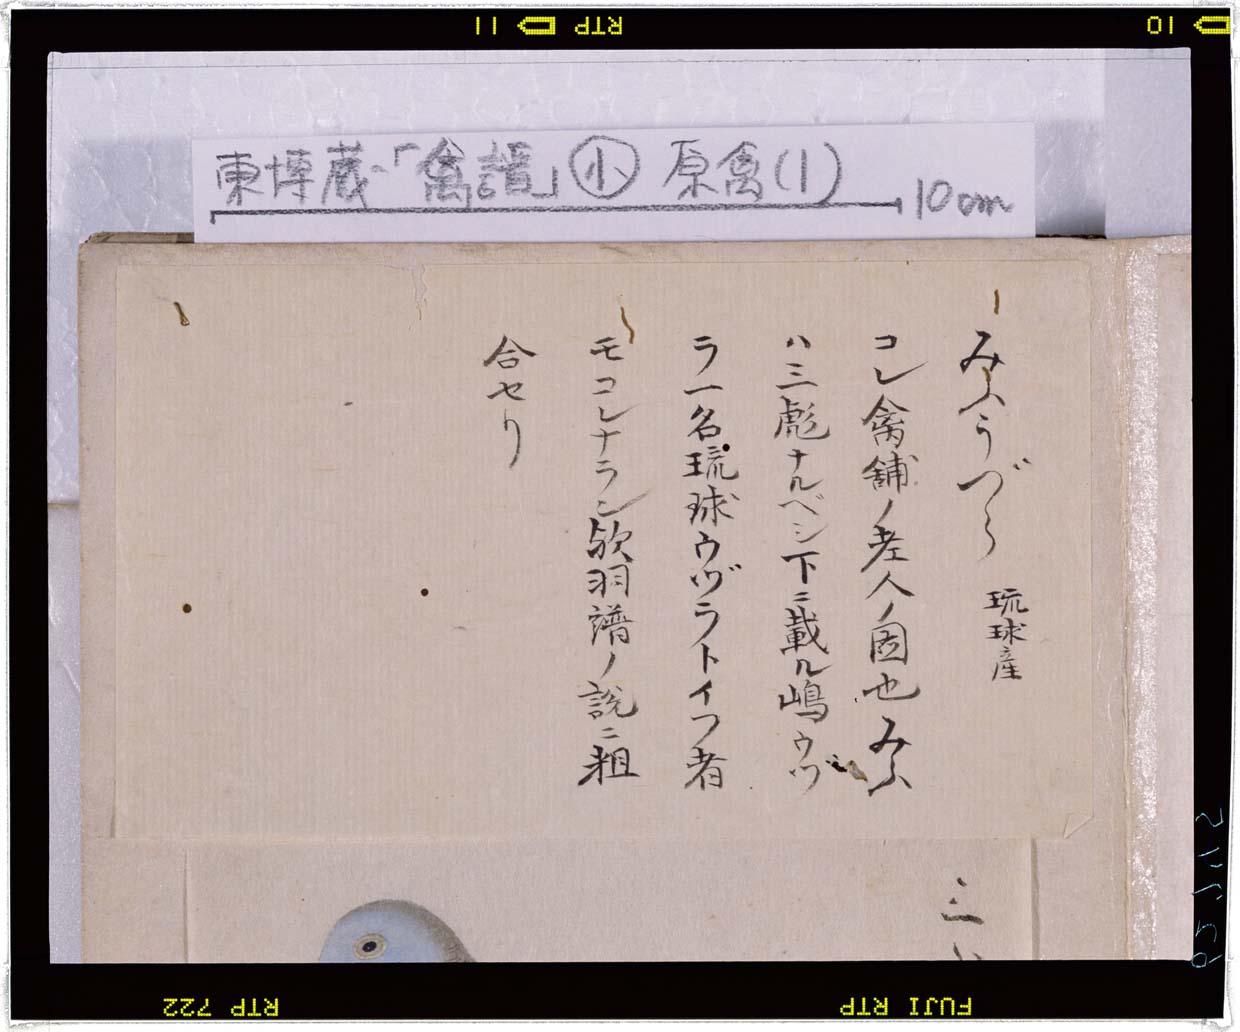 11 RTP
10
東博蔵「禽譜」小 原禽(1)
10cm
みふうづら 琉球産
コレ禽舗ノ老人ノ図也みふ
ハ三彪ナルベシ下ニ載ル嶋ウヅ
ラ一名琉球ウヅラトイフ者
モコレナラン欤羽譜ノ説ニ粗
合セリ
RTP 722
FUJI RTP